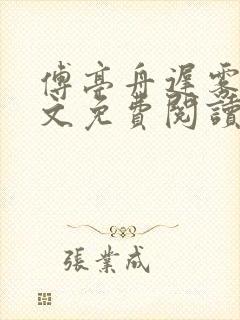 傅亭舟遲霧
文免費閱讀
張業成